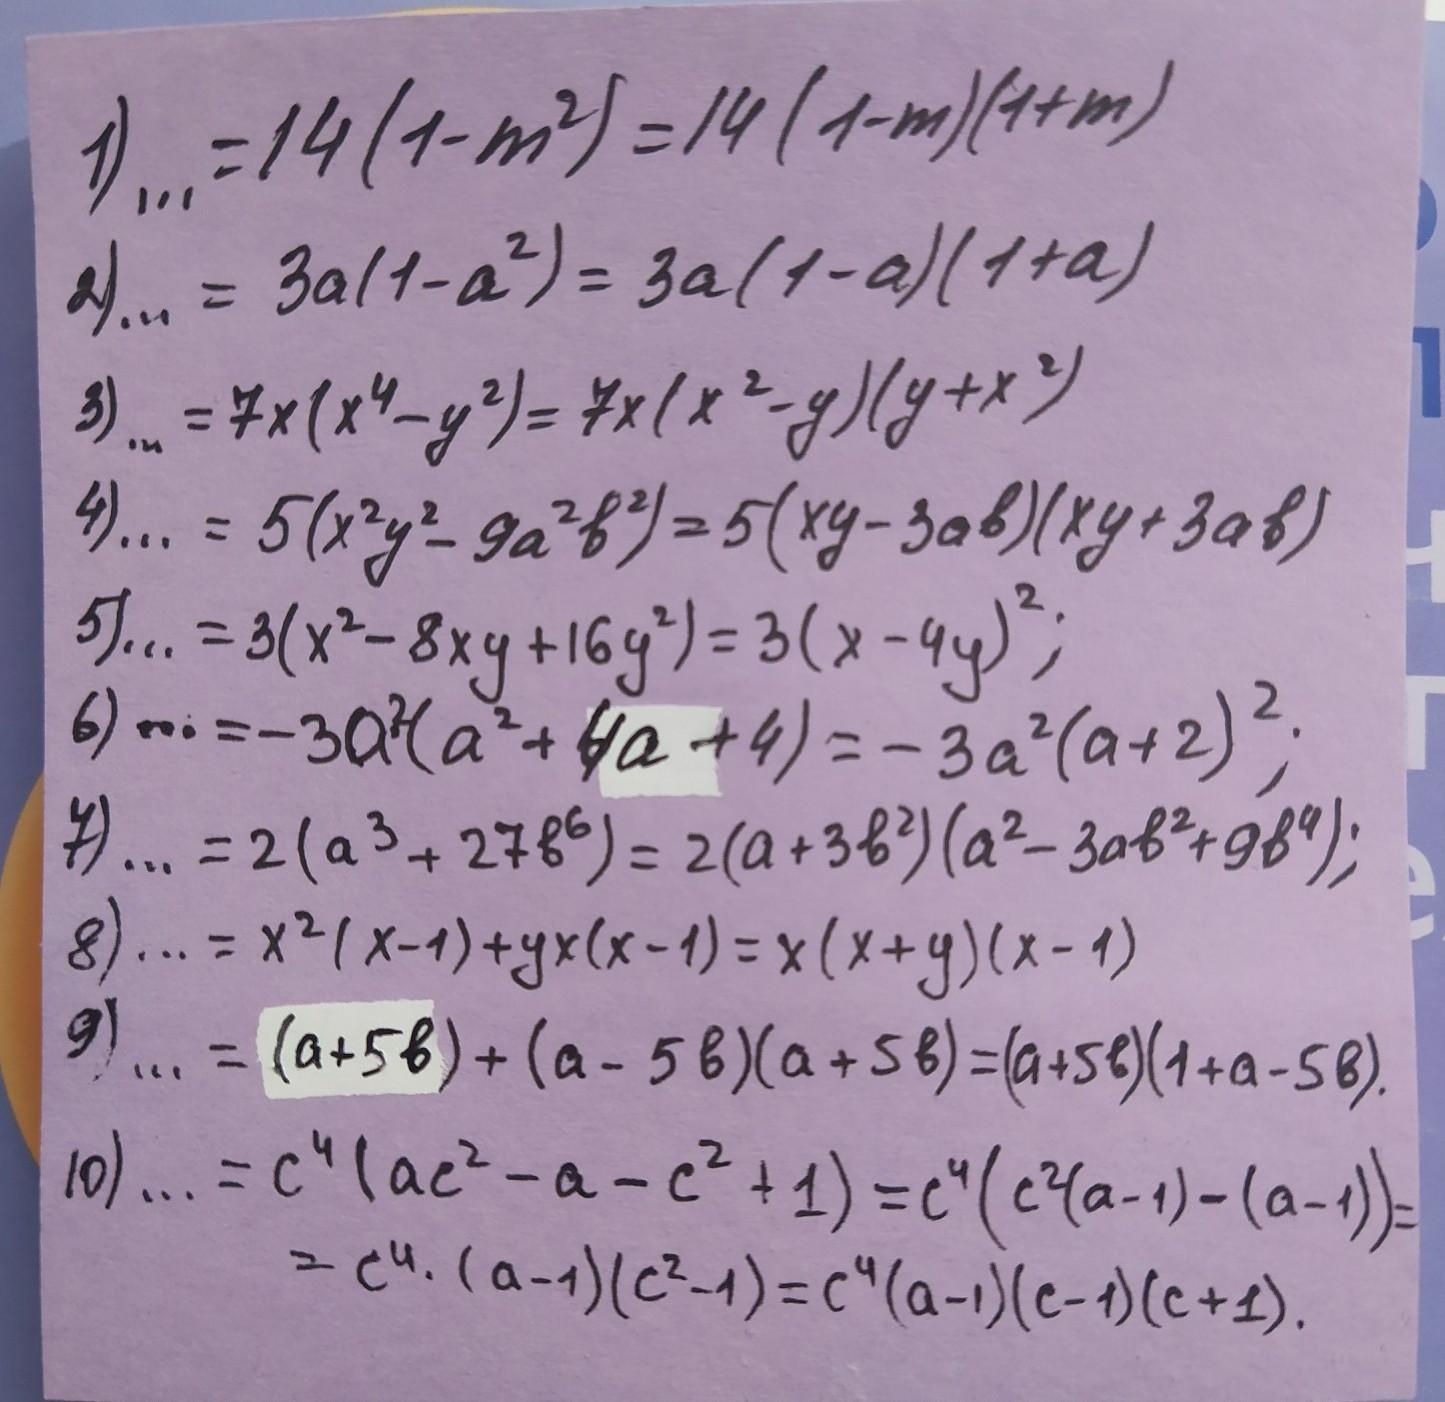 1)... = 14(1-m²) = 14(1-m)(1+m)
2)... = 3a(1-a²) = 3a(1-a)(1+a)
3)... = 7x(x⁴-y²) = 7x(x²-y)(y+x²)
4)... = 5(x²y²-9a²b²) = 5(xy-3ab)(xy+3ab)
5)... = 3(x²-8xy+16y²) = 3(x-4y)²;
6)... = -3a²(a²+4a+4) = -3a²(a+2)²;
7)... = 2(a³+27b⁶) = 2(a+3b²)(a²-3ab²+9b⁴);
8)... = x²(x-1)+yx(x-1) = x(x+y)(x-1)
9)... = (a+5b)+(a-5b)(a+5b) = (a+5b)(1+a-5b).
10)... = c⁴(ac²-a-c²+1) = c⁴(c²(a-1)-(a-1)) =
= c⁴·(a-1)(c²-1) = c⁴(a-1)(c-1)(c+1).